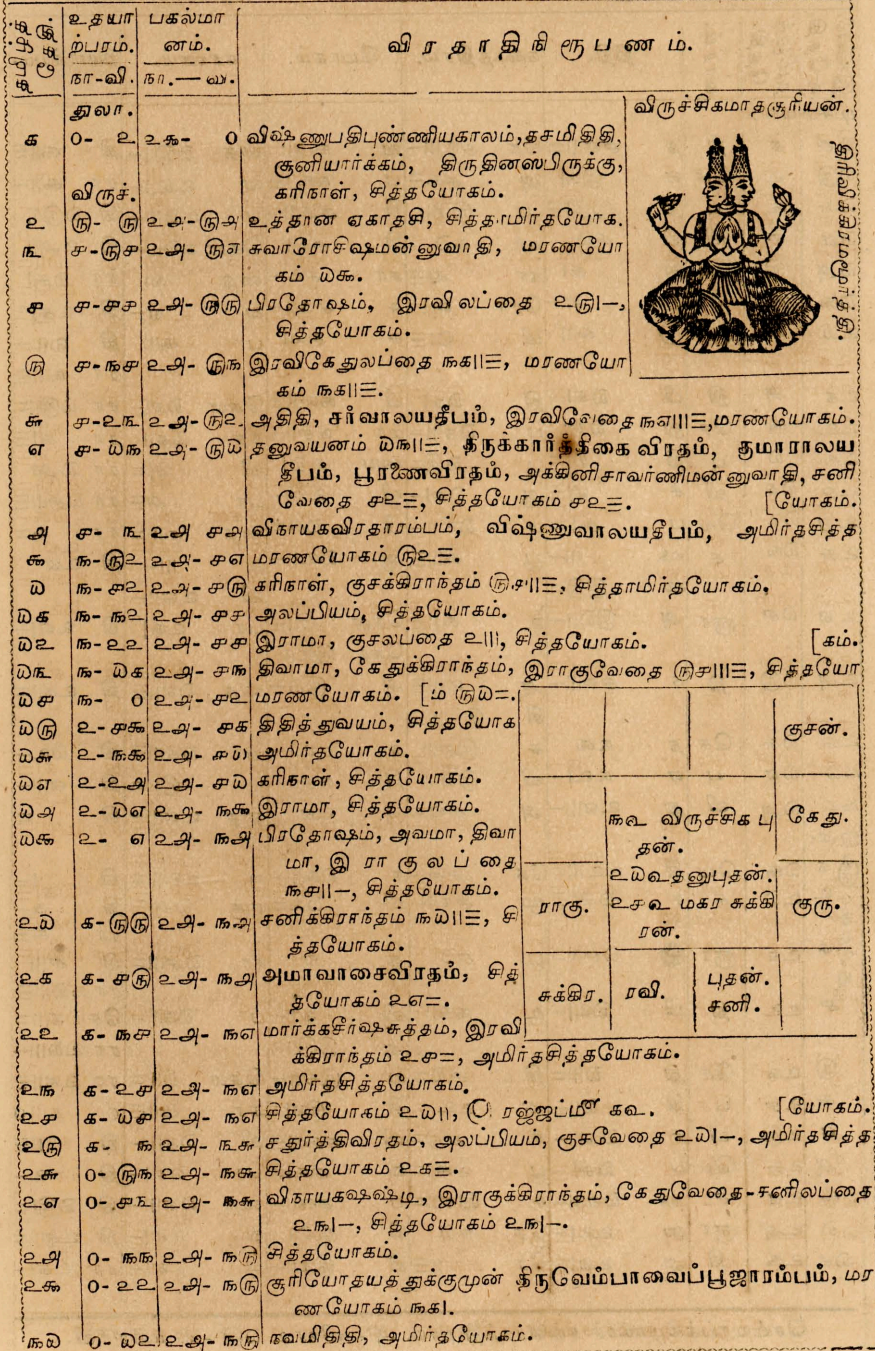 தமிழ்த் தேதி.
உதயா பகல்மா
ற்பரம். னம். விரதாதிநிரூபணம்.
நா-வி. நா.—வி.
துலா. விருச்சிகமாதசூரியன்.
க ௦- உ உ௯- ௦ விஷ்ணுபதிபுண்ணியகாலம்,தசமிதிதி,
சூனியார்க்கம், திருதினஸ்பிருக்கு,
விருச். கரிநாள், சித்தயோகம்.
உ ௫- ௫ உஅ-௫அ உத்தான ஏகாதசி, சித்தாமிர்தயோக.
௩ ௪-௫௪ உஅ-௫எ சுவாரோசிஷமன்னுவாதி, மரணயோ
கம் ௰௯.
௪ ௪-௪௪ உஅ-௫௫ பிரதோஷம், இரவிலப்தை உ௫|—,
சித்தயோகம்.
௫ ௪-௩௪ உஅ-௫௩ இரவிகேதுலப்தை ௩க||≡, மரணயோ
கம் ௩க||≡.
௬ ௪-உ௩ உஅ-௫உ அதிதி, சர்வாலயதீபம், இரவிவேதை ௩எ|||≡,மரணயோகம்.
எ ௪-௰௩ உஅ-௫௰ தனுவயனம் ௰௩||≡, திருக்கார்த்திகை விரதம், குமாராலய
தீபம், பூரணைவிரதம், அக்கினிசாவர்ணிமன்னுவாதி, சனி
வேதை ௪உ≡, சித்தயோகம் ௪உ≡. [யோகம்.
அ ௪- ௩ உஅ ௪அ விநாயகவிரதாரம்பம், விஷ்ணுவாலயதீபம், அமிர்தசித்த
௯ ௩-௫உ உஅ- ௪எ மரணயோகம் ௫உ≡.
௰ ௩-௪உ உஅ-௪௫ கரிநாள், குசக்கிராந்தம் ௫௪||≡, சித்தாமிர்தயோகம்.
௰க ௩- ௩உ உஅ- ௪௪ அலப்பியம், சித்தயோகம்.
௰உ ௩- உஉ உஅ- ௪௪ இராமா, குசலப்தை உ|||, சித்தயோகம். [கம்.
௰௩ ௩- ௰க உஅ- ௪௩ திவாமா, கேதுக்கிராந்தம், இராகுவேதை ௫௪|||≡, சித்தயோ
௰௪ ௩- ௦ உஅ- ௪உ மரணயோகம். [ம் ௫௰=.
௰௫ உ- ௪௯ உஅ- ௪க திதித்துவயம், சித்தயோக
௰௬ உ- ௩௯ உஅ- ௪௰ அமிர்தயோகம்.
௰எ உ-உஅ உஅ- ௪௰ கரிநாள், சித்தயோகம்.
௰அ உ- ௰எ உஅ- ௩௯ இராமா, சித்தயோகம்.
௰௯ உ- எ உஅ- ௩அ பிரதோஷம், அவமா, திவா
மா, இராகுலப்தை
௩௪||—, சித்தயோகம்.
உ௰ க-௫௫ உஅ- ௩அ சனிக்கிராந்தம் ௩௰||≡, சி
த்தயோகம்.
உக க- ௪௫ உஅ- ௩அ அமாவாசைவிரதம், சித்
தயோகம் உஎ=.
உஉ க- ௩௪ உஅ- ௩எ மார்க்கசீர்ஷசுத்தம், இரவி
க்கிராந்தம் உ௪=, அமிர்தசித்தயோகம்.
உ௩ க- உ௪ உஅ- ௩எ அமிர்தசித்தயோகம்.
உ௪ க- ௰௪ உஅ- ௩எ சித்தயோகம் உ௰||, [யோகம்.
உ௫ க- ௩ உஅ- ௩௬ சதுர்த்திவிரதம், அலப்பியம், குசவேதை உ௰|—, அமிர்தசித்த
உ௬ ௦- ௫௩ உஅ- ௩௬ சித்தயோகம் உக≡.
உஎ ௦- ௪௩ உஅ- ௩௬ விநாயகஷஷ்டி, இராகுக்கிராந்தம், கேதுவேதை-சனிலப்தை
உ௩|—, சித்தயோகம் உ௩|—.
உஅ ௦- ௩௩ உஅ- ௩௫ சித்தயோகம்.
உ௯ ௦- உஉ உஅ- ௩௫ சூரியோதயத்துக்குமுன் திருவெம்பாவைப்பூஜாரம்பம், மர
ணயோகம் ௩க|.
௩௰ ௦- ௰உ உஅ- ௩௫ நவமிதிதி, அமிர்தயோகம்.
திரிவிக்கிரமமூர்த்தி.
குசன்.
௩௳ விருச்சிக பு
தன்.
உ௰௳தனுபுதன்.
உ௪௳ மகர சுக்கி
ரன்.
கேது.
ராகு.
குரு.
சுக்கிர.
ரவி.
புதன்.
சனி.